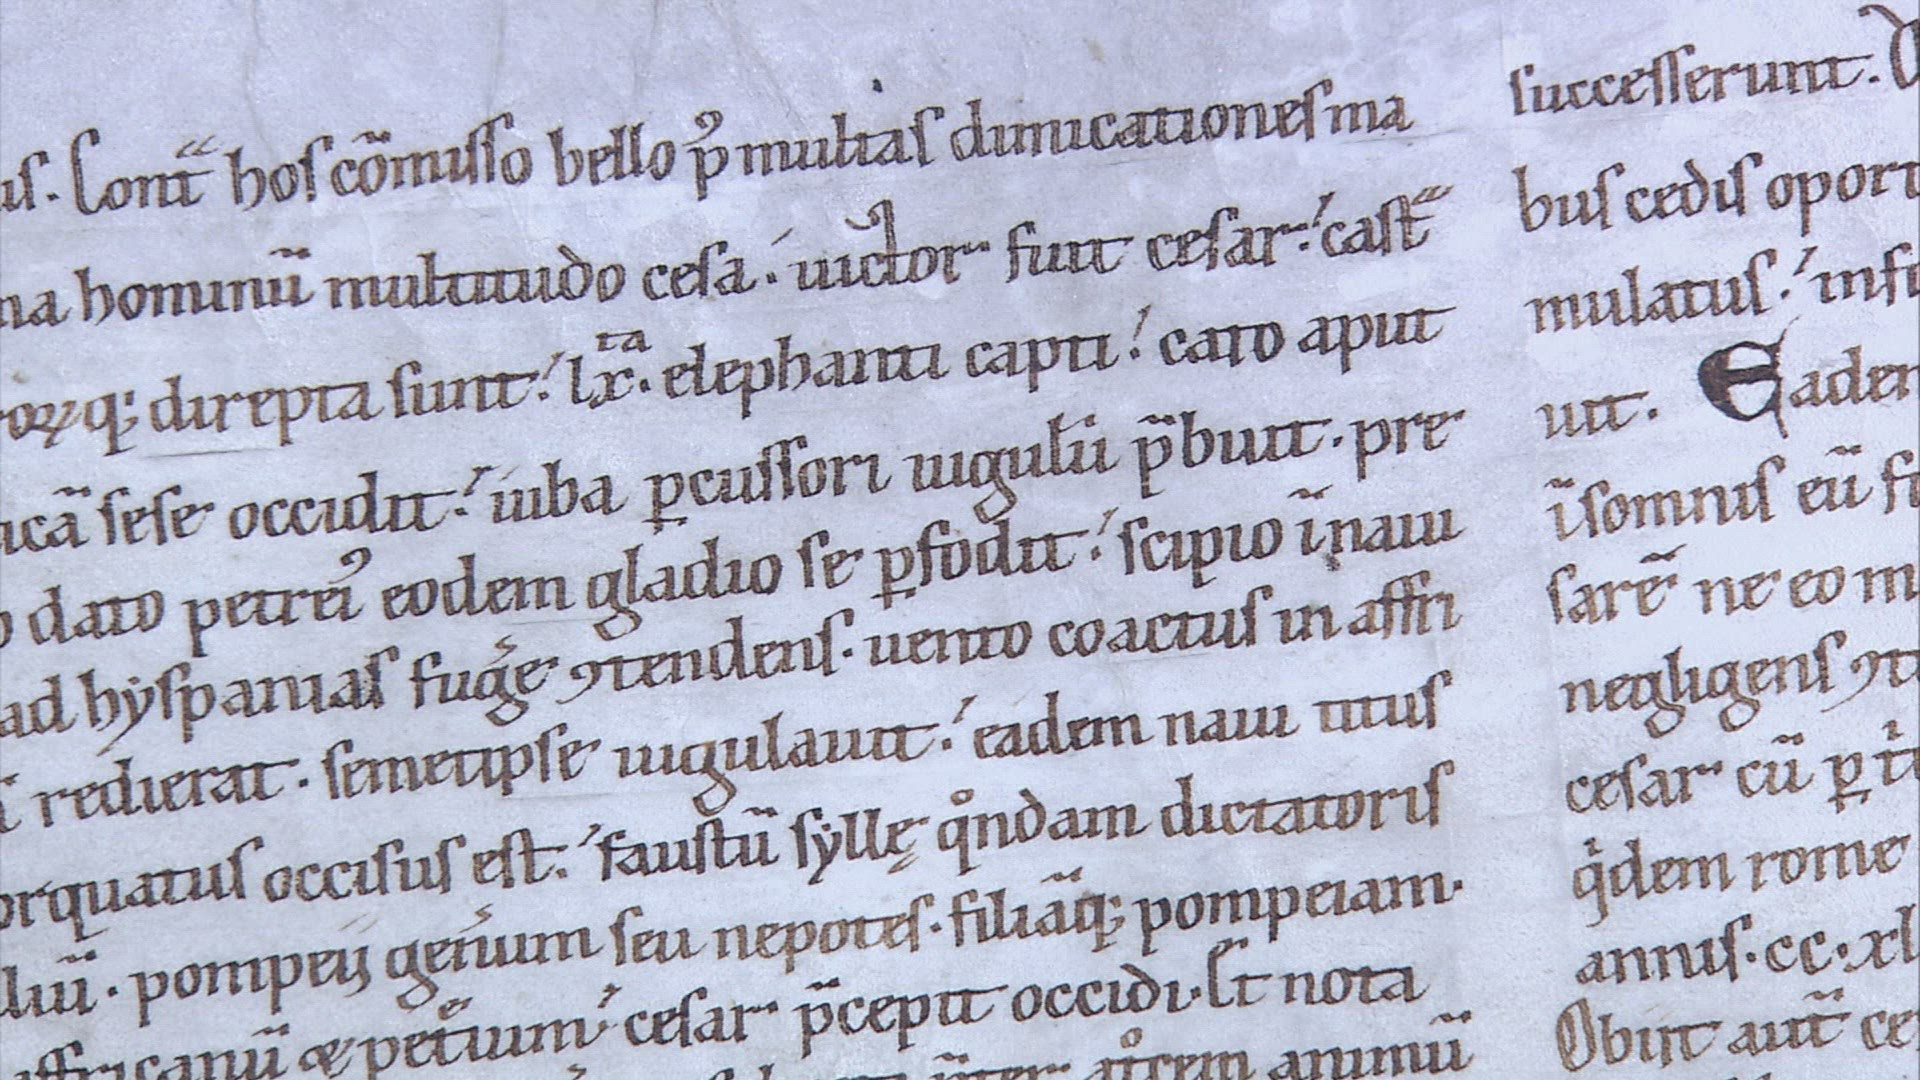 us. Cont̄ hos cōmisso bello p̾ multas dimicationes ma
na hominū multitudo cesa. uictor fuit cesar. cast̄
orꝝq; direpta sunt. lx.ta elephanti capti. cato aput
icā sese occidit. iuba ꝑcussori iugulū p̄buit. pre
o dato petrei᾽ eodem gladio se ꝑfodit. scipio ī naui
ad hẏspanias fug̃e ꝯtendens. uento coactus in affri
ī redierat. semetipse iugulauit. eadem naui titus
orquatus occisus est. faustū sẏllę qͦndam dictatoris
liū. pompeij generum seu nepotes. filiāq; pompeiam.
affricanū & petͥum cesar p̄cepit occidi. Lꝉ nota
animū
successerunt.
bus cedis oport
mulatus. inf
uit. Eadem
īsomnis eū fu
sarē ne eo m
negligens ꝯt
cesar cū ꝑ tͥ
qͥdem rome
annis. cc. xl
Obiit aūt ce